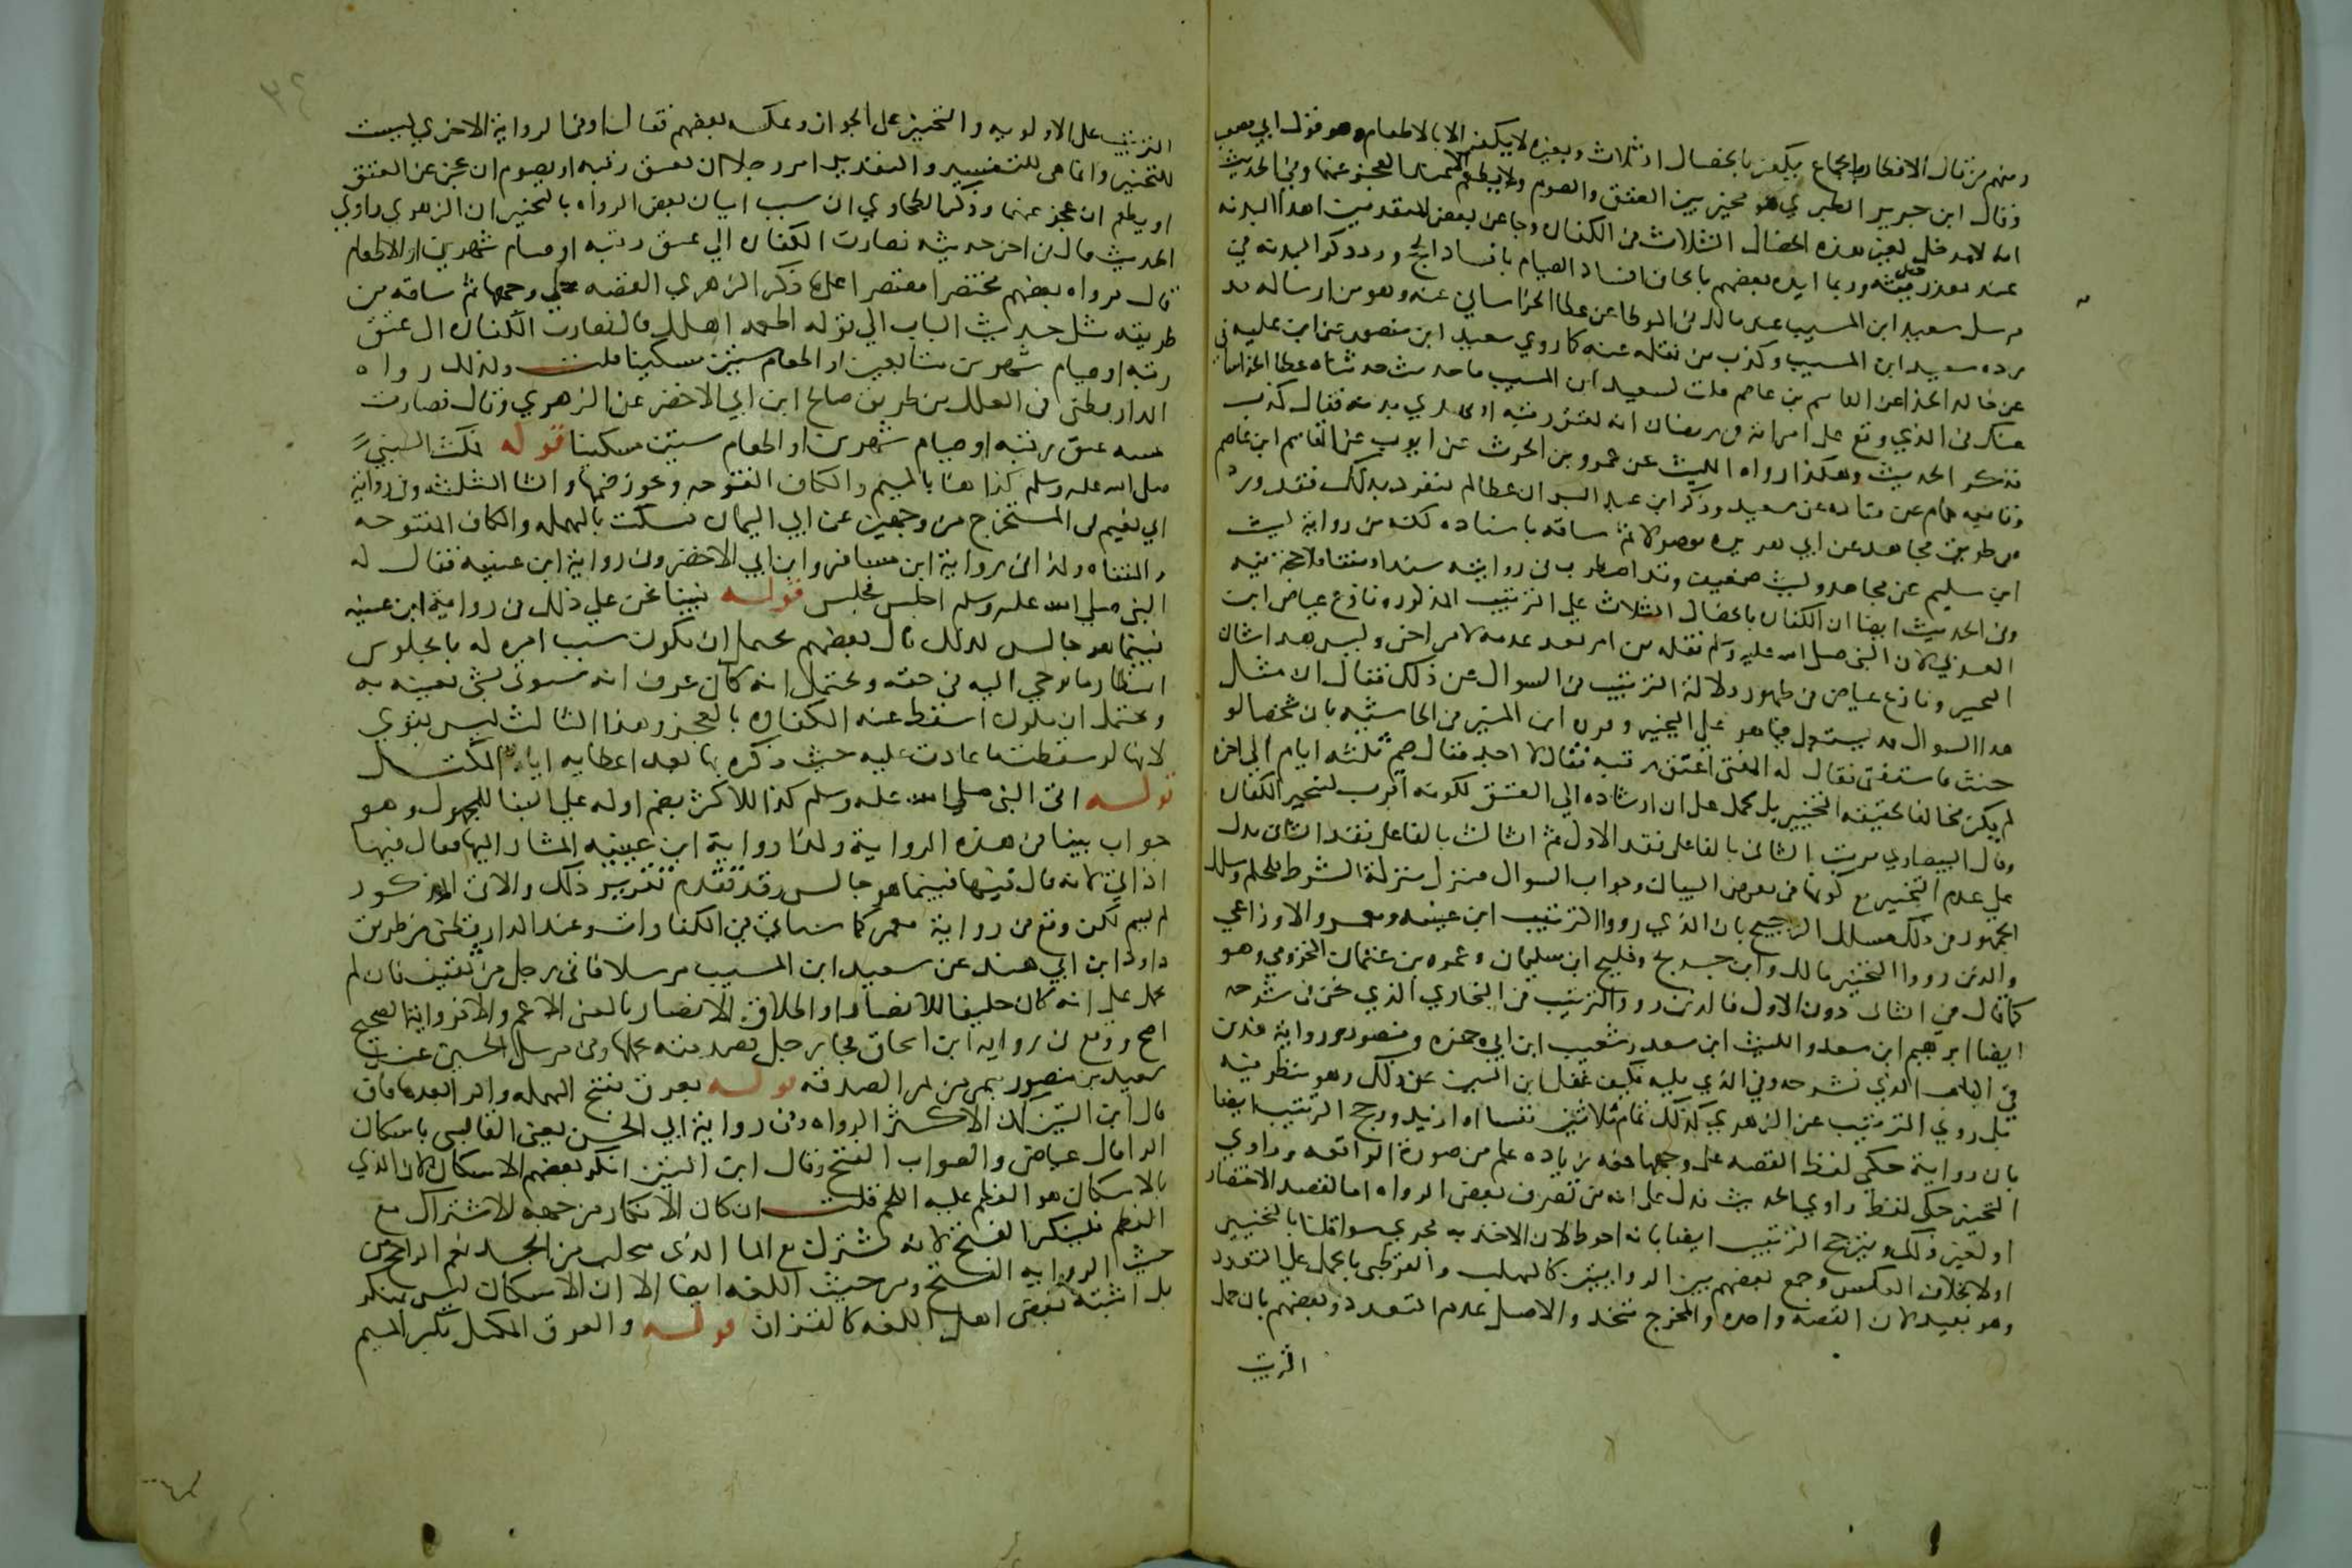 ومنهم من قال الافطار بالجماع يكفر بالخصال الثلاث وبغيره لا يكفر الا بالاطعام وهو قول ابي مصعب
وقال ابن جرير الطبري هو مخير بين العتق والصوم ولا يطعم الا عند العجز عنهما وفي الحديث
انه لا مدخل لغير هذه الخصال الثلاث في الكفاره وجا عن بعض المتقدمين اهدا البدنه
عند تعذر الرقبه وربما ايده بعضهم بالحاق افساد الصيام بافساد الحج وورد ذكر البدنه في
مرسل سعيد ابن المسيب عند مالك في الموطا عن عطا الخراساني عنه وهو مع ارساله قد
رده سعيد ابن المسيب وكذب من نقله عنه كما روي سعيد ابن منصور عن ابن عليه
عن خالد الحذا عن القاسم بن عاصم قلت لسعيد ابن المسيب ما حديث حدثناه عطا الخراساني
عنك في الذي وقع على امراته في رمضان انه يعتق رقبه او يهدي بدنه فقال كذب
فذكر الحديث وهكذا رواه الليث عن عمرو بن الحرث عن ايوب عن القاسم ابن عاصم
وتابعه همام عن قتاده عن سعيد وذكر ابن عبد البر ان عطا لم ينفرد بذلك فقد ورد
من طريق مجاهد عن ابي هريره موصولا ثم ساقه باسناده لكنه من رواية ليث
ابن سليم عن مجاهد وليث ضعيف وقد اضطرب في روايته سندا ومتنا فلا حجة فيه
وفي الحديث ايضا ان الكفاره بالخصال الثلاث علي الترتيب المذكور ونازع عياض ابن
العربي لان النبي صلى الله عليه وسلم نقله من امر بعد عدمه لامر اخر وليس هذا شان
التخيير ونازع عياض في ظهور دلالة الترتيب في السوال عن ذلك فقال ان مثل
هذا السوال قد يستعمل فيما هو علي التخيير وقرره ابن المنير في الحاشيه بان شخصا لو
حنث فاستفتى فقال له المفتي اعتق رقبه فقال لا اجد فقال صم ثلثه ايام الي اخره
لم يكن مخالفا لحقيقه التخيير بل يحمل على ان ارشاده الي العتق لكونه اقرب لتنجيز الكفاره
وقال البيضاوي ترتيب الثاني بالفا على فقد الاول ثم الثالث بالفا على فقد الثاني يدل
على عدم التخيير مع كونها في معرض البيان وجواب السوال فينزل منزلة الشرط للحكم وسلك
الجمهور في ذلك مسلك الترجيح بان الذي رووا الترتيب ابن عيينه ومعمر والاوزاعي
والذين رووا التخيير مالك وابن جريج وفليح ابن سليمان وعمرو بن عثمان المخزومي وهو
كما قال في الثاني دون الاول فالذين رووا الترتيب في البخاري الذي نحن في شرحه
ايضا ابرهيم ابن سعد والليث ابن سعد وشعيب ابن ابي حمزه ومنصور ورواية هذين
في الباب الذي نشرحه وفي الذي يليه فكيف غفل ابن التين عن ذلك وهو ينظر فيه
بل روي الترتيب عن الزهري كذلك تمام ثلاثين نفسا او ازيد ورجح الترتيب ايضا
بان راويه حكي لفظ القصه على وجهها فمعه زياده علم من صورة الواقعه وراوي
التخيير حكي لفظ راوي الحديث فدل على انه من تصرف بعض الرواه اما لقصد الاختصار
او لغير ذلك ويترجح الترتيب ايضا بانه احوط لان الاخذ به مجزي سوا قلنا بالتخيير
اولا بخلاف العكس وجمع بعضهم بين الروايتين كالمهلب والقرطبي بالحمل علي التعدد
وهو بعيد لان القصه واحده والمخرج متحد والاصل عدم التعدد وبعضهم بان حمل
الترتيب
الترتيب على الاولويه والتخيير على الجواز وعكسه بعضهم فقال او في الرواية الاخري ليست
للتخيير وانما هي للتفسير والتقدير امر رجلا ان يعتق رقبه او يصوم ان عجز عن العتق
او يطعم ان عجز عنهما وذكر الطحاوي ان سبب اتيان بعض الرواه بالتخيير ان الزهري راوي
الحديث قال في اخر حديثه فصارت الكفاره الي عتق رقبه او صيام شهرين او الاطعام
قال فرواه بعضهم مختصرا مقتصرا على ما ذكر الزهري القصه على وجهها ثم ساقه من
طريقه مثل حديث الباب الي قوله اطعمه اهلك قال فصارت الكفاره الى عتق
رقبه او صيام شهرين متتابعين او اطعام ستين مسكينا قلت وكذلك رواه
الدارقطني في العلل من طريق صالح ابن ابي الاخضر عن الزهري وقال فصارت
سنه عتق رقبه او صيام شهرين او اطعام ستين مسكينا قوله فمكث النبي
صلى الله عليه وسلم كذا هنا بالميم والكاف المفتوحه ويجوز ضمها والثا المثلثه وفي رواية
ابي نعيم في المستخرج من وجهين عن ابي اليمان فسكت بالمهمله والكاف المفتوحه
والمثناه وكذا في رواية ابن مسافر وابن ابي الاخضر وفي رواية ابن عيينه فقال له
النبي صلى الله عليه وسلم اجلس فجلس قوله فبينا نحن علي ذلك في رواية ابن عيينه
فبينما هو جالس كذلك قال بعضهم يحتمل ان يكون سبب امره له بالجلوس
انتظار ما يوحي اليه في حقه ويحتمل انه كان عرف انه سيوتى بشي يعينه به
ويحتمل ان يكون اسقط عنه الكفاره بالعجز وهذا الثالث ليس بقوي
لانها لو سقطت ما عادت عليه حيث ذكره بها بعد اعطايه اياه المكتل
قوله اتي النبي صلى الله عليه وسلم كذا للاكثر بضم اوله علي البنا للمجهول وهو
جواب بينا في هذه الرواية وكذا رواية ابن عيينه المشار اليها فقال فيها
اذ اتي لانه قال فيها فبينما هو جالس وقد تقدم تقرير ذلك والاتي المذكور
لم يسم لكن وقع في رواية معمر كما سياتي في الكفارات وعند الدارقطني من طريق
داود ابن ابي هند عن سعيد ابن المسيب مرسلا فاتى رجل من ثقيف فان لم
يحمل علي انه كان حليفا للانصار او اطلاق الانصار بالمعنى الاعم والا فرواية الصحيح
اصح ووقع في رواية ابن اسحاق فجا رجل بصدقته يحملها وفي مرسل الحسن عند
سعيد بن منصور بتمر من تمر الصدقه قوله بعرق بفتح المهمله والرا بعدها قاف
قال ابن التين كذا لاكثر الرواه وفي رواية ابي الحسن يعني القابسي باسكان
الرا قال عياض والصواب الفتح وقال ابن التين انكر بعضهم الاسكان لان الذي
بالاسكان هو العظم عليه اللحم قلت ان كان الانكار من جهة الاشتراك مع
العظم فلينكر الفتح لانه يشترك مع الما الذي يتحلب من الجسد نعم الراجح من
حيث الروايه الفتح ومن حيث اللغه ايضا الا ان الاسكان ليس بمنكر
بل اثبته بعض اهل اللغه كالقزاز قوله والعرق المكتل بكسر الميم